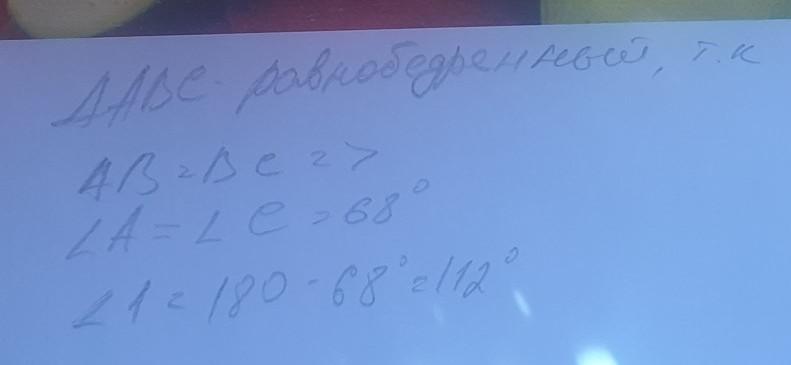 ΔABC - равнобедренный, т.к
AB = BC =>
∠A = ∠C = 68°
∠1 = 180 - 68° = 112°